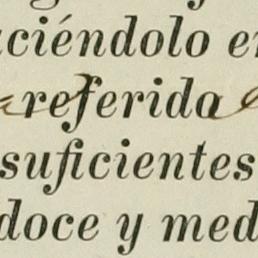 ciéndolo e
referida
suficientes
doce y med